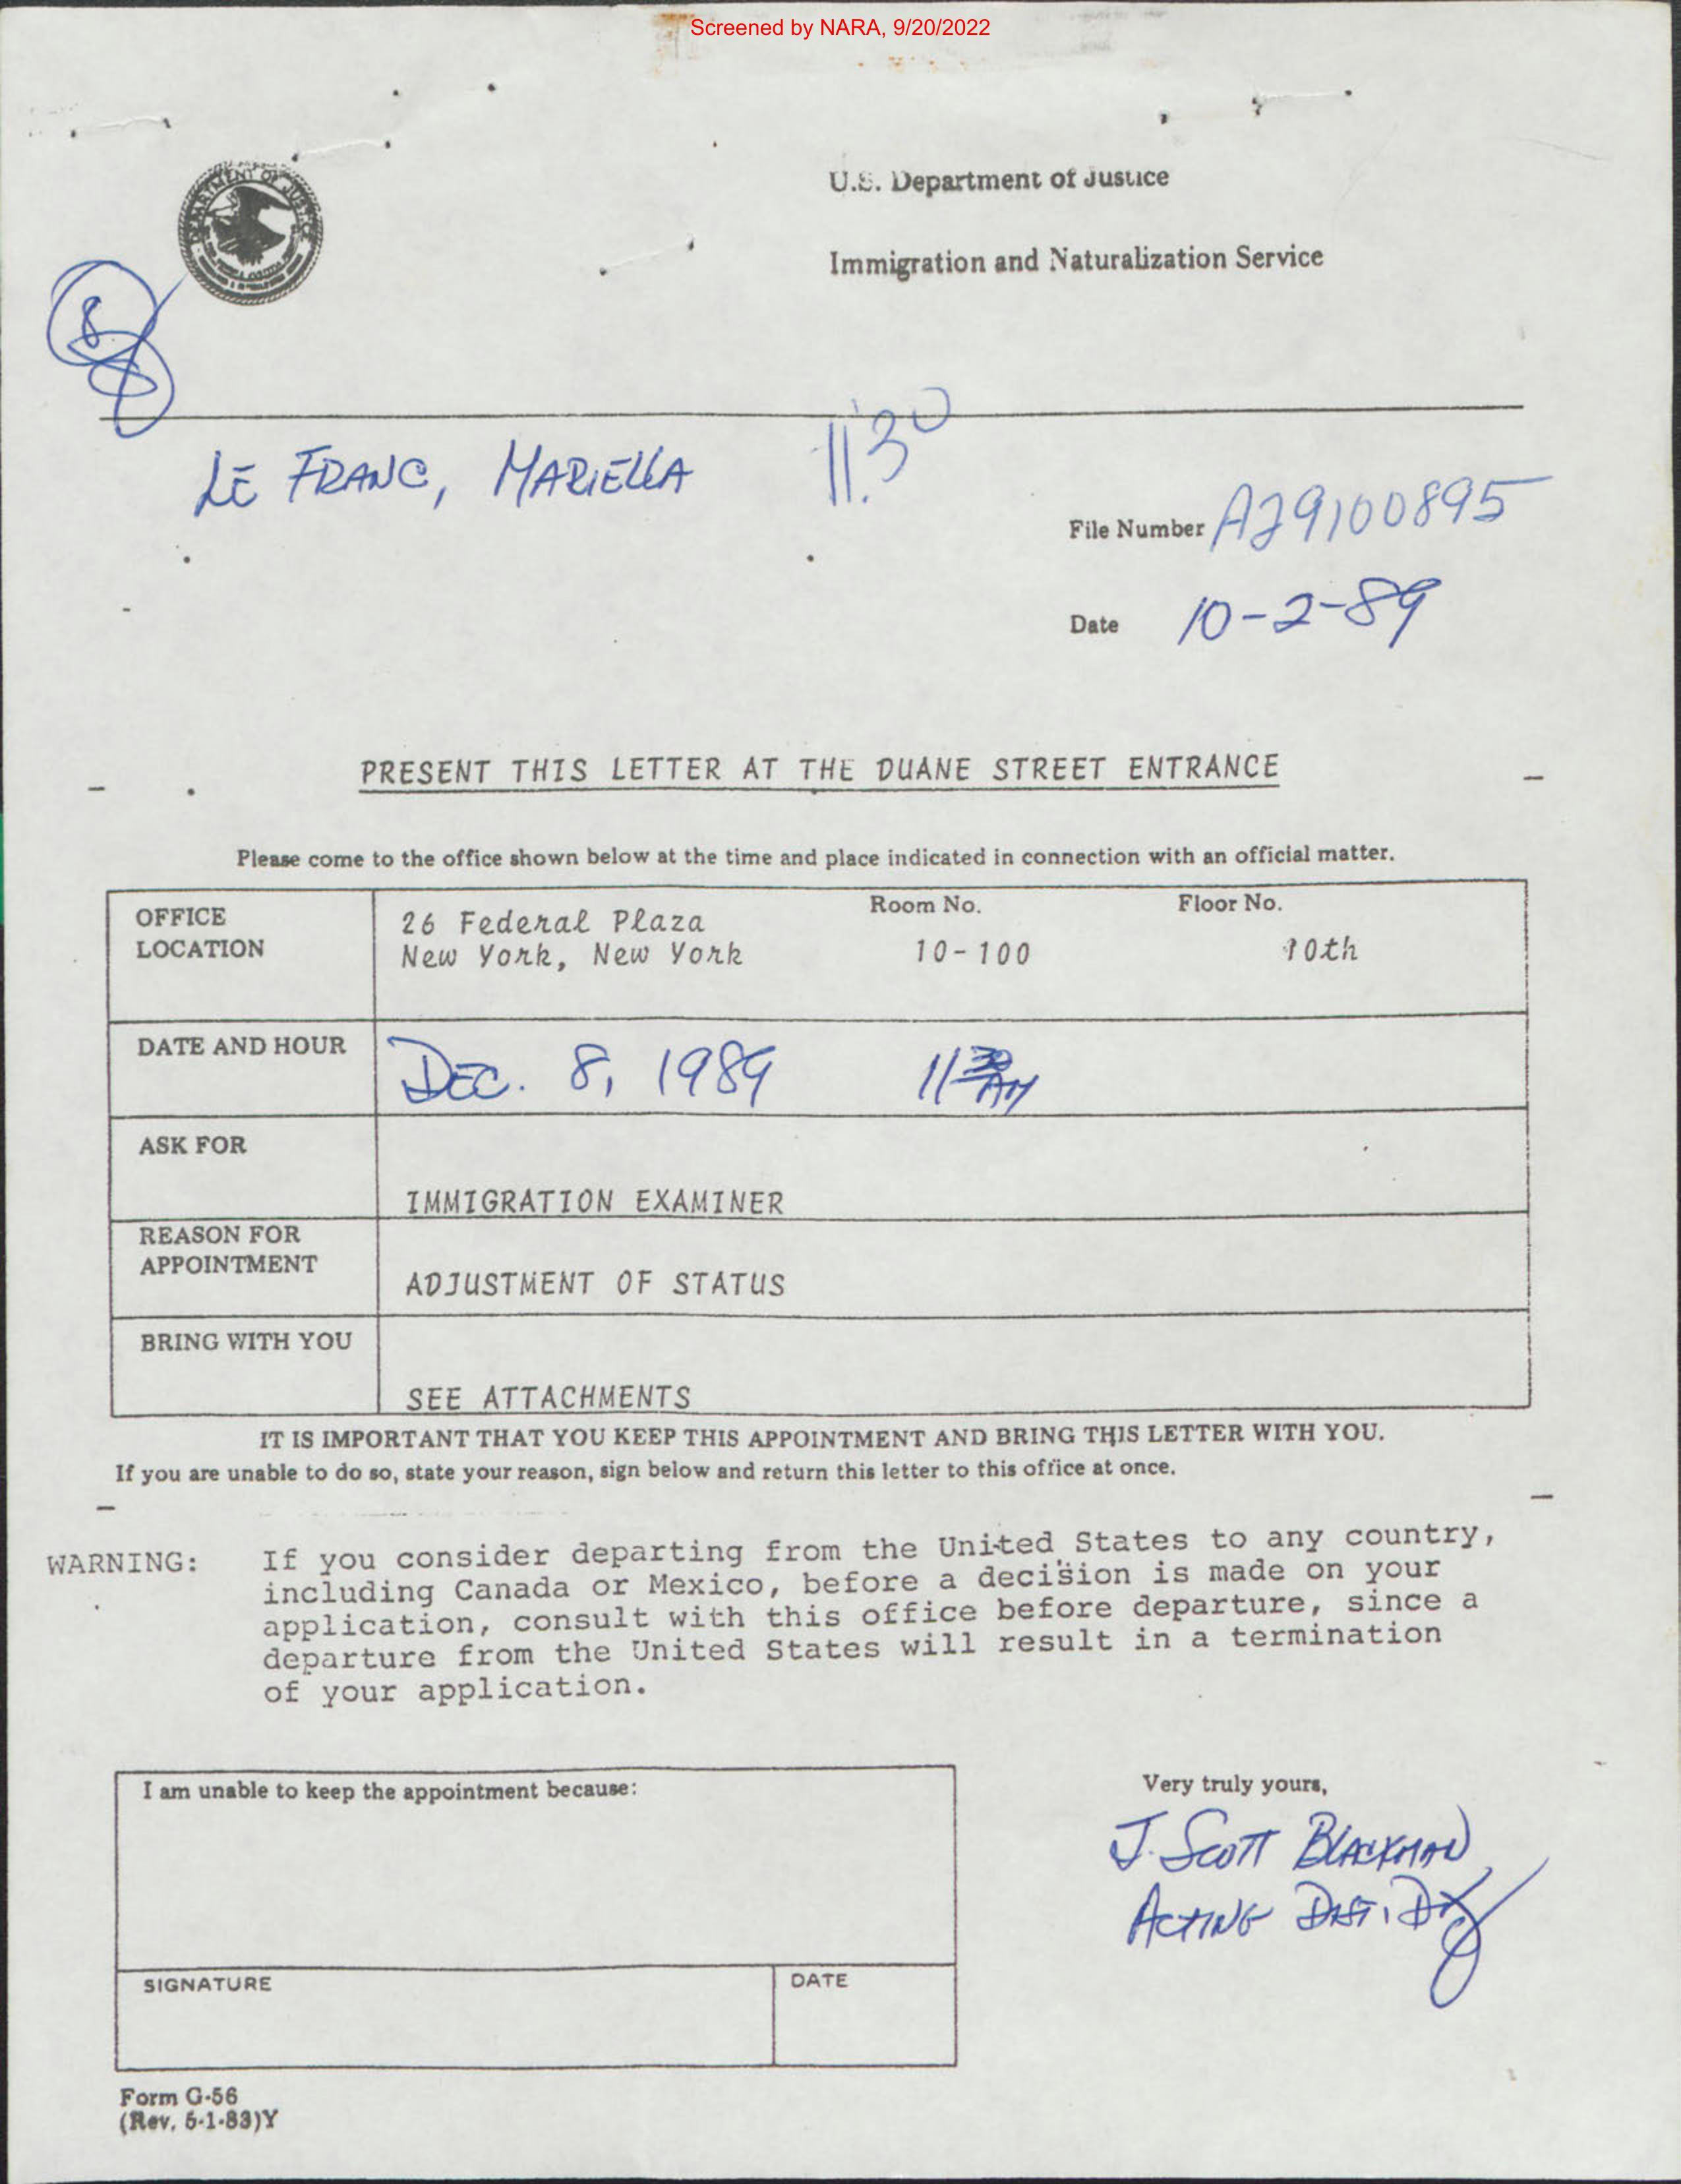 Screened by NARA, 9/20/2022
DEPARTMENT OF JUSTICE
U.S. Department of Justice
Immigration and Naturalization Service
8
LE FRANC, MARIELLA
11.30
File Number A29100895
Date 10-2-89
PRESENT THIS LETTER AT THE DUANE STREET ENTRANCE
Please come to the office shown below at the time and place indicated in connection with an official matter.
OFFICE LOCATION
26 Federal Plaza
New York, New York
Room No.
10-100
Floor No.
10th
DATE AND HOUR
DEC. 8, 1989 11 30 AM
ASK FOR
IMMIGRATION EXAMINER
REASON FOR
APPOINTMENT
ADJUSTMENT OF STATUS
BRING WITH YOU
SEE ATTACHMENTS
IT IS IMPORTANT THAT YOU KEEP THIS APPOINTMENT AND BRING THIS LETTER WITH YOU.
If you are unable to do so, state your reason, sign below and return this letter to this office at once.
WARNING: If you consider departing from the United States to any country,
including Canada or Mexico, before a decision is made on your
application, consult with this office before departure, since a
departure from the United States will result in a termination
of your application.
I am unable to keep the appointment because:
SIGNATURE
DATE
Very truly yours,
J. SCOTT BLACKMAN
ACTING DIST. DIR
Form G-56
(Rev. 5-1-83)Y